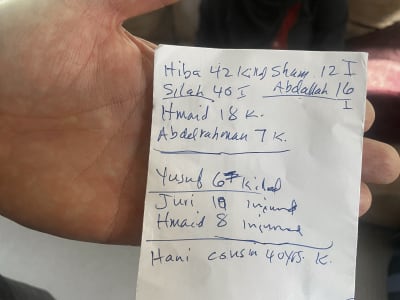 Hiba 42 Kild Sham 12 I
Silah 40 I Abdallah 16 I
Hmaid 18 K.
Abdelrahman 7 K.
Yusuf 6 Kiled
Juri 10 injured
Hmaid 8 injured
Hani cousin 40yrs. K.